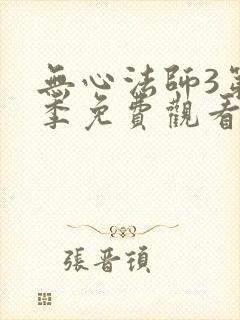 無心法師3第
季免費觀看
張晋頊